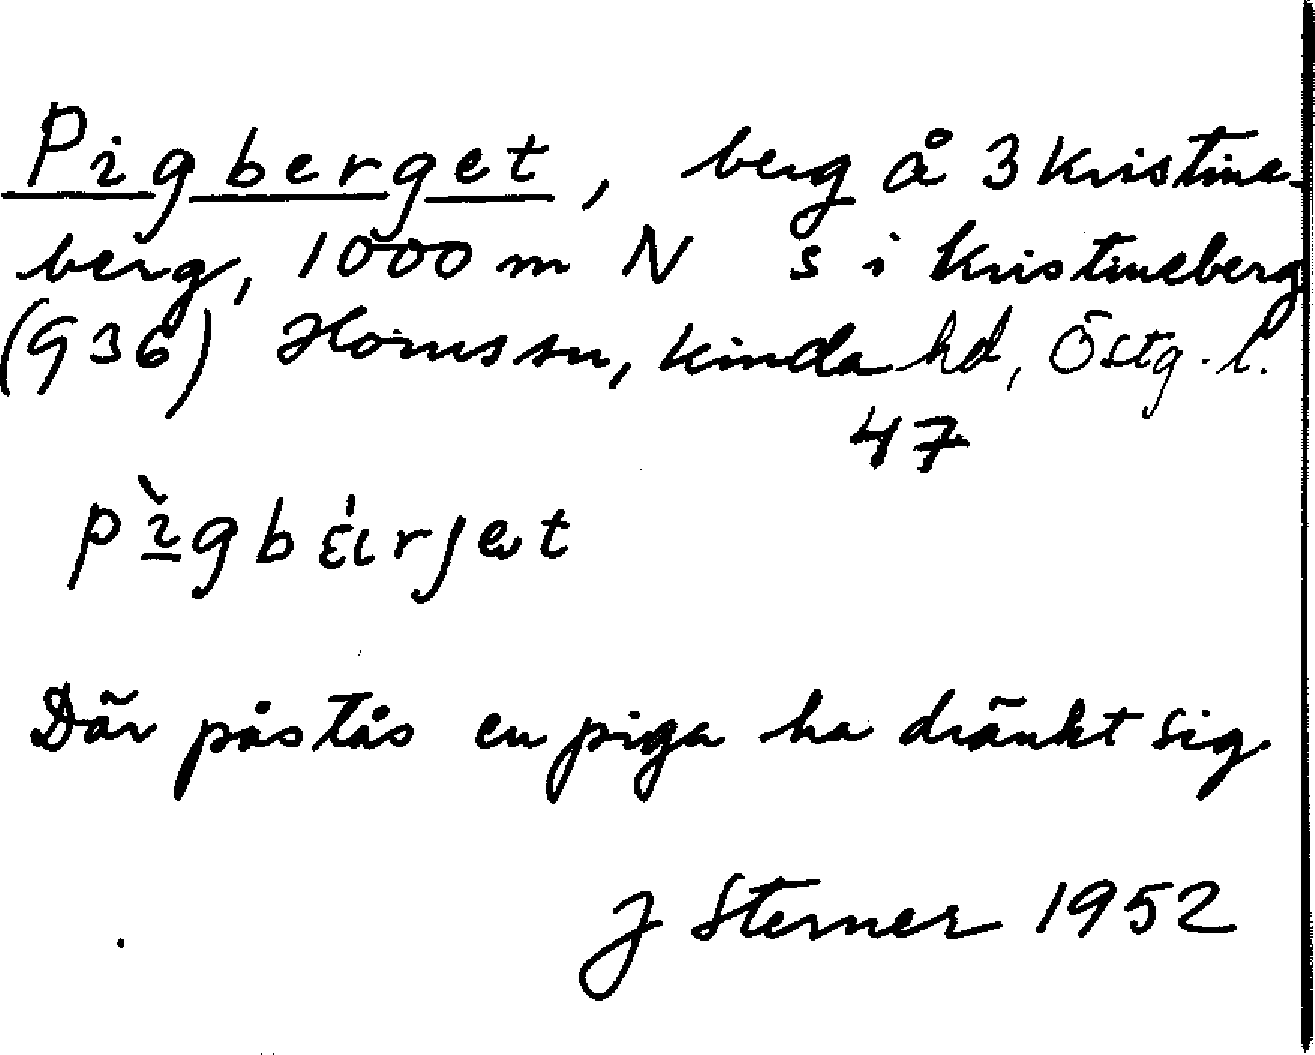 Pigberget, berg å 3 Kristine-
berg, 1000 m N s i Kristineberg
(936) Hornssn, Kinda hd, Östg. l.
47
Där påstås en piga ha dränkt sig
J Sterner 1952